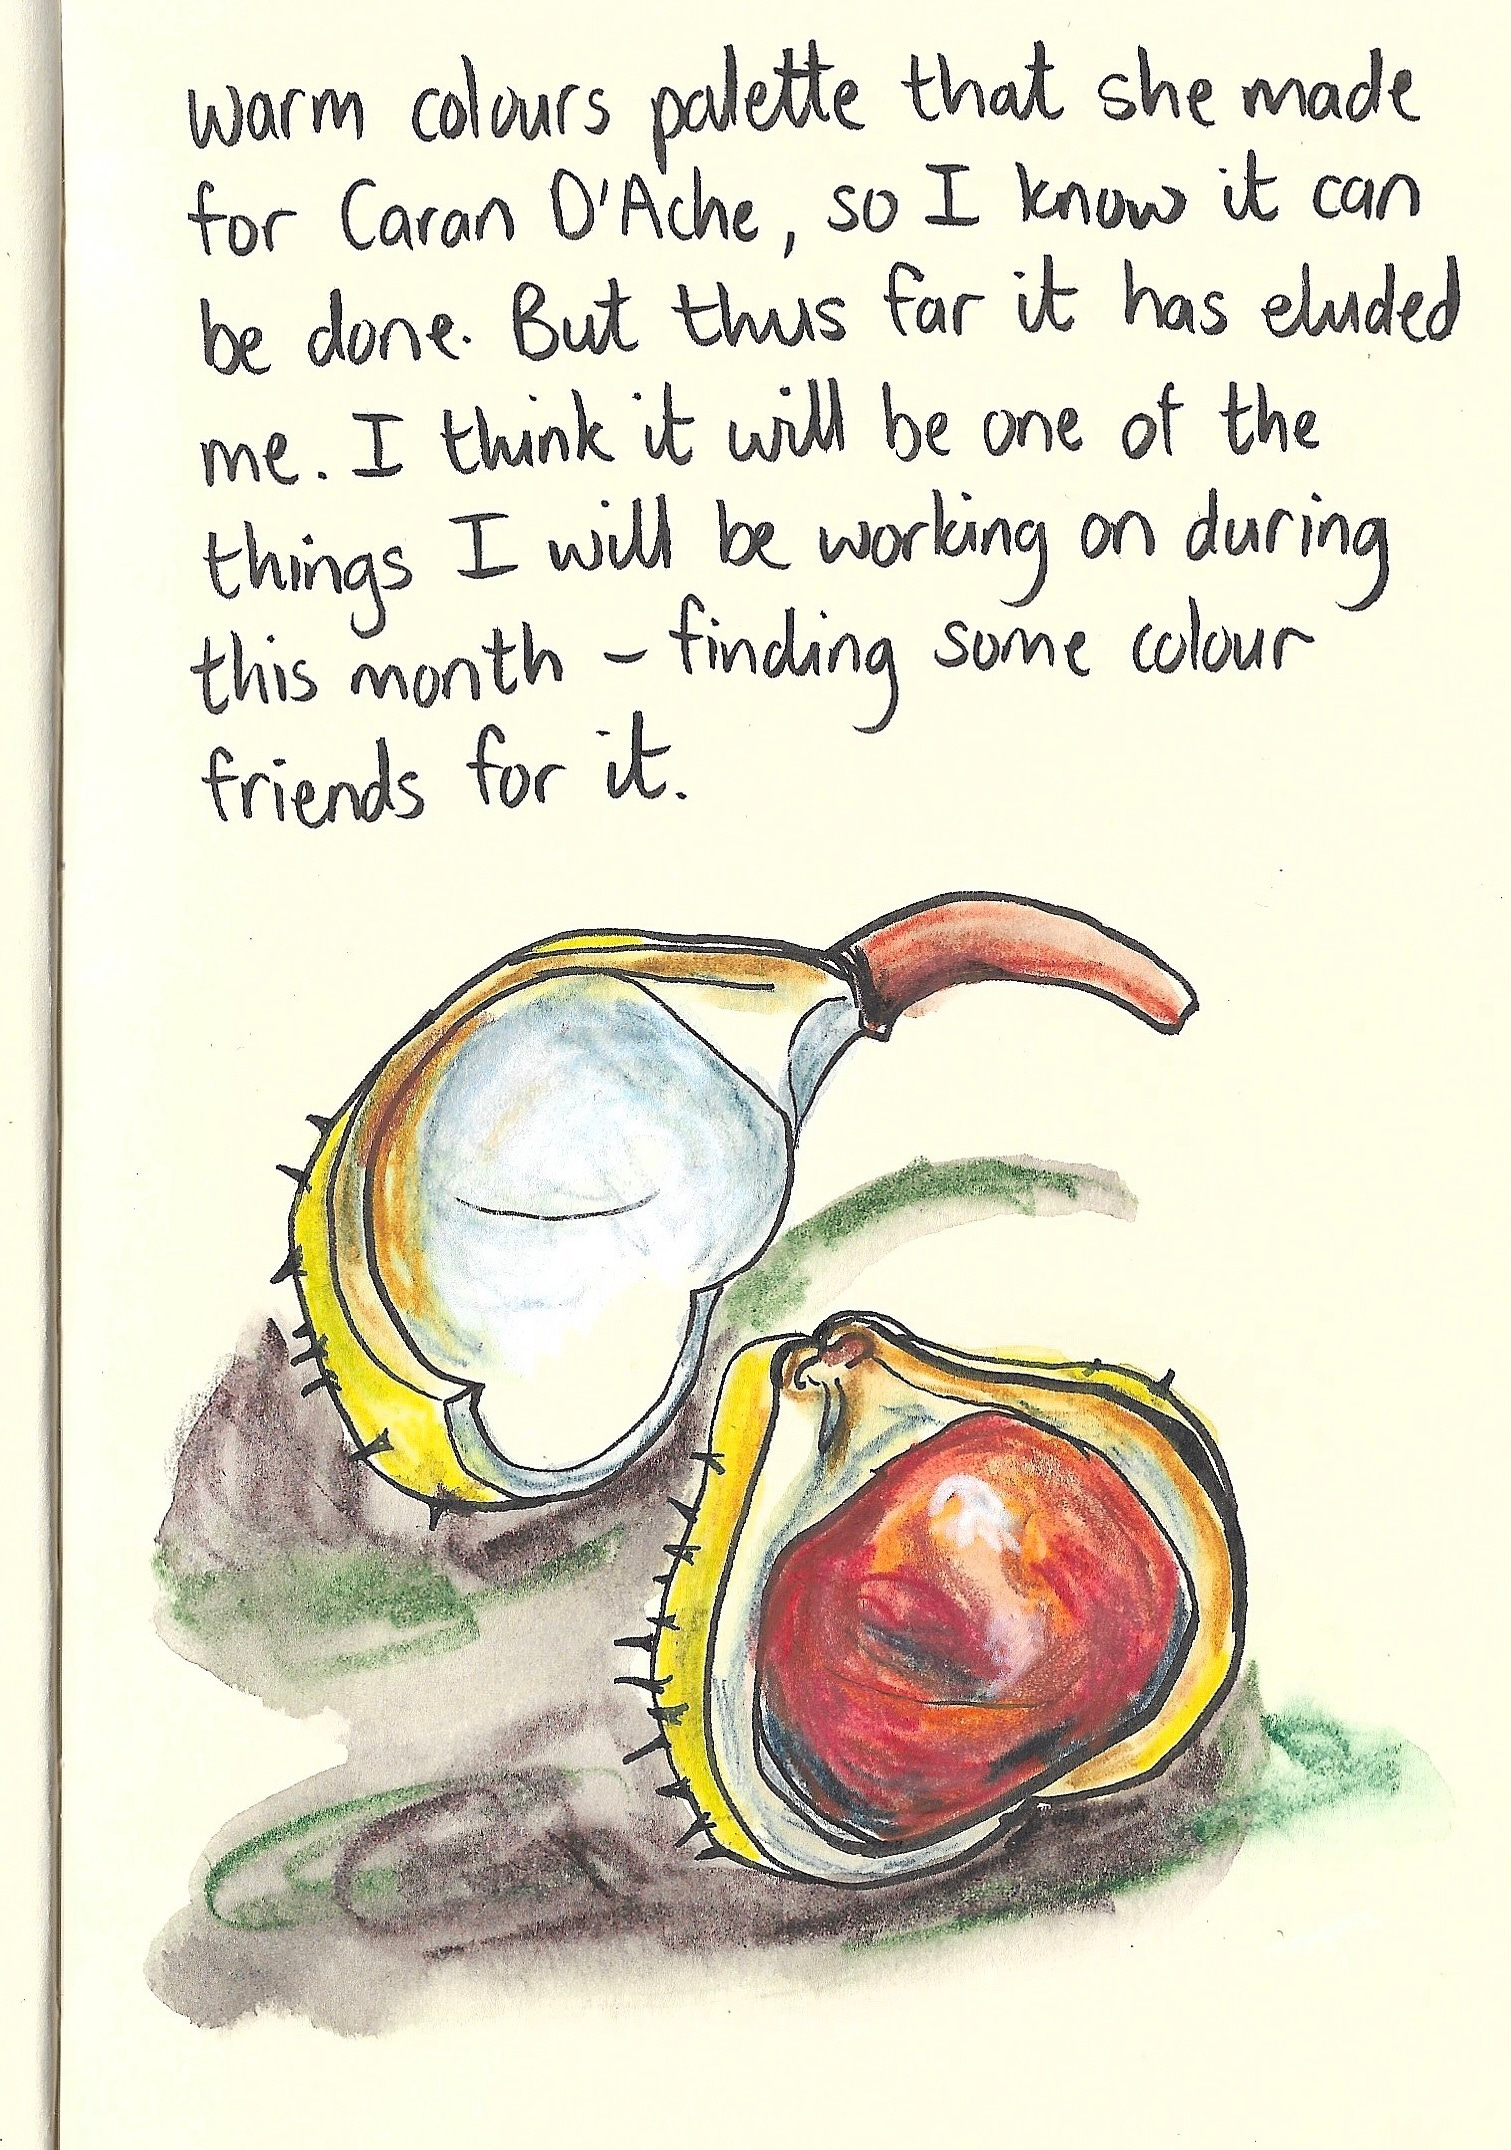 warm colours palette that she made
for Caran D'Ache, so I know it can
be done. But thus far it has eluded
me. I think it will be one of the
things I will be working on during
this month – finding some colour
friends for it.